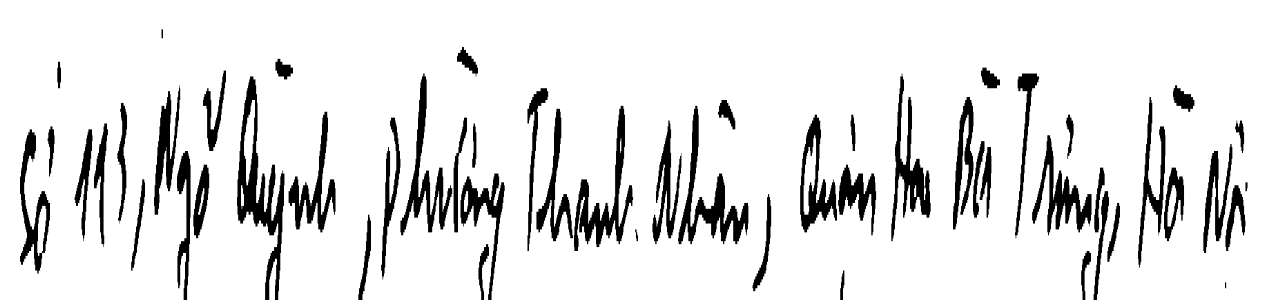 Số 113, Ngõ Quỳnh, Phường Thanh Nhàn, Quận Hai Bà Trưng, Hà Nội